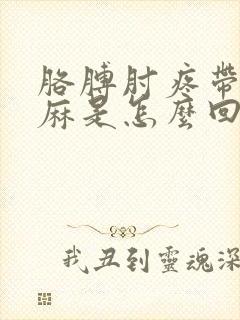 胳膊肘疼帶
麻是怎麼回
我丑到靈魂深